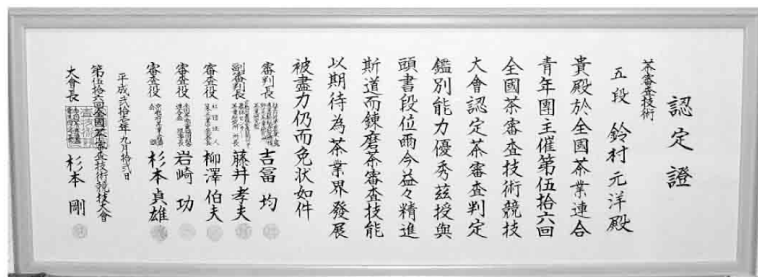 認定證
茶審査技術
五段 鈴村元洋殿
貴殿於全國茶業連合
青年團主催第伍拾六回
全國茶審査技術競技
大會認定茶審査判定
鑑別能力優秀茲授與
頭書段位雨今益々精進
斯道而錬磨茶審査技能
以期待為茶業界發展
被盡力仍而免状如件
審判長 吉冨 均
副審判長 藤井孝夫
審査役 柳澤伯夫
審査役 岩崎 功
審査役 杉本貞雄
平成弐拾壱年九月拾弐日
第伍拾六回全國茶審査技術競技大會
大會長 杉本 剛